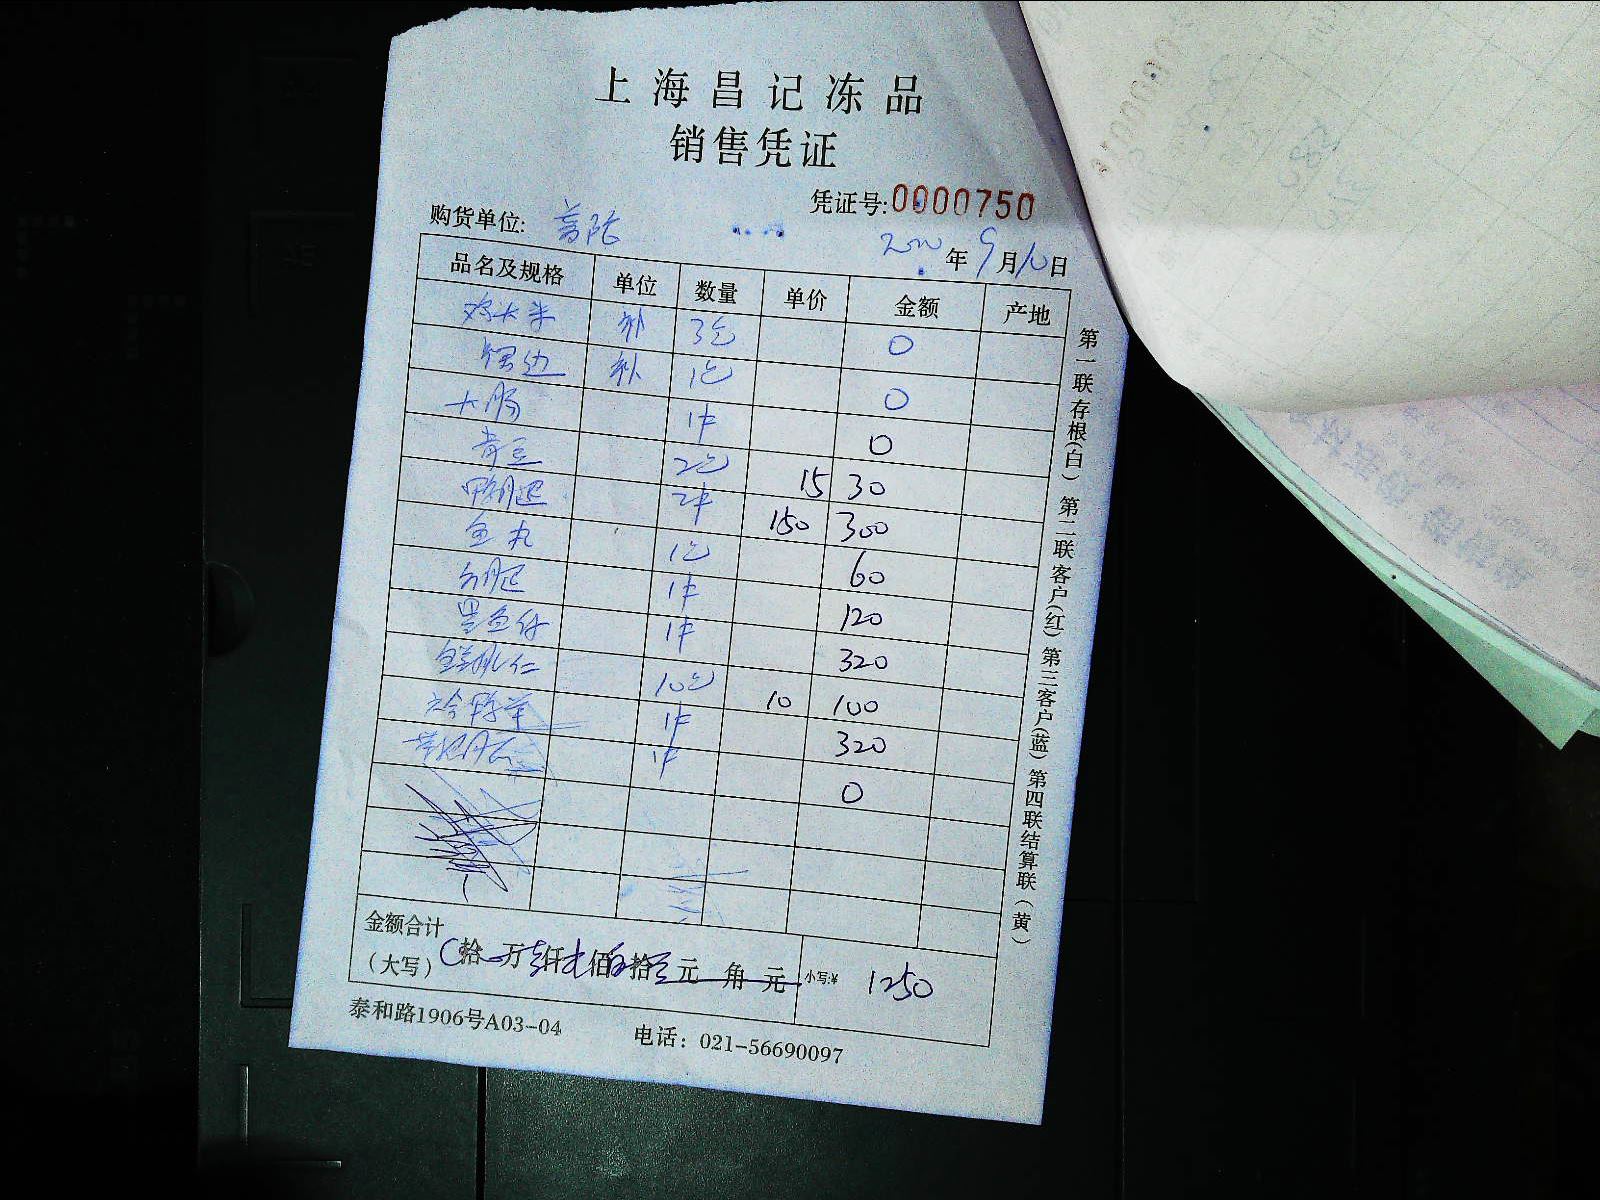 上海昌记冻品
销售凭证
凭证号:0000750
购货单位: 普陀
2020年9月10日
品名及规格 单位 数量 单价 金额 产地
鸡大米 补 3包 0
补 1包 0
大肠 1件 0
青豆 2包 15 30
鸭腿 2件 150 300
鱼丸 1包 60
1件 120
黑鱼仔 1件 320
10包 10 100
1件 320
1件 0
金额合计
(大写) 拾 万壹仟 佰 拾 元 角 元 小写:¥ 1250
泰和路1906号A03-04 电话: 021-56690097
第一联存根(白) 第二联客户(红) 第三客户(蓝) 第四联结算联(黄)